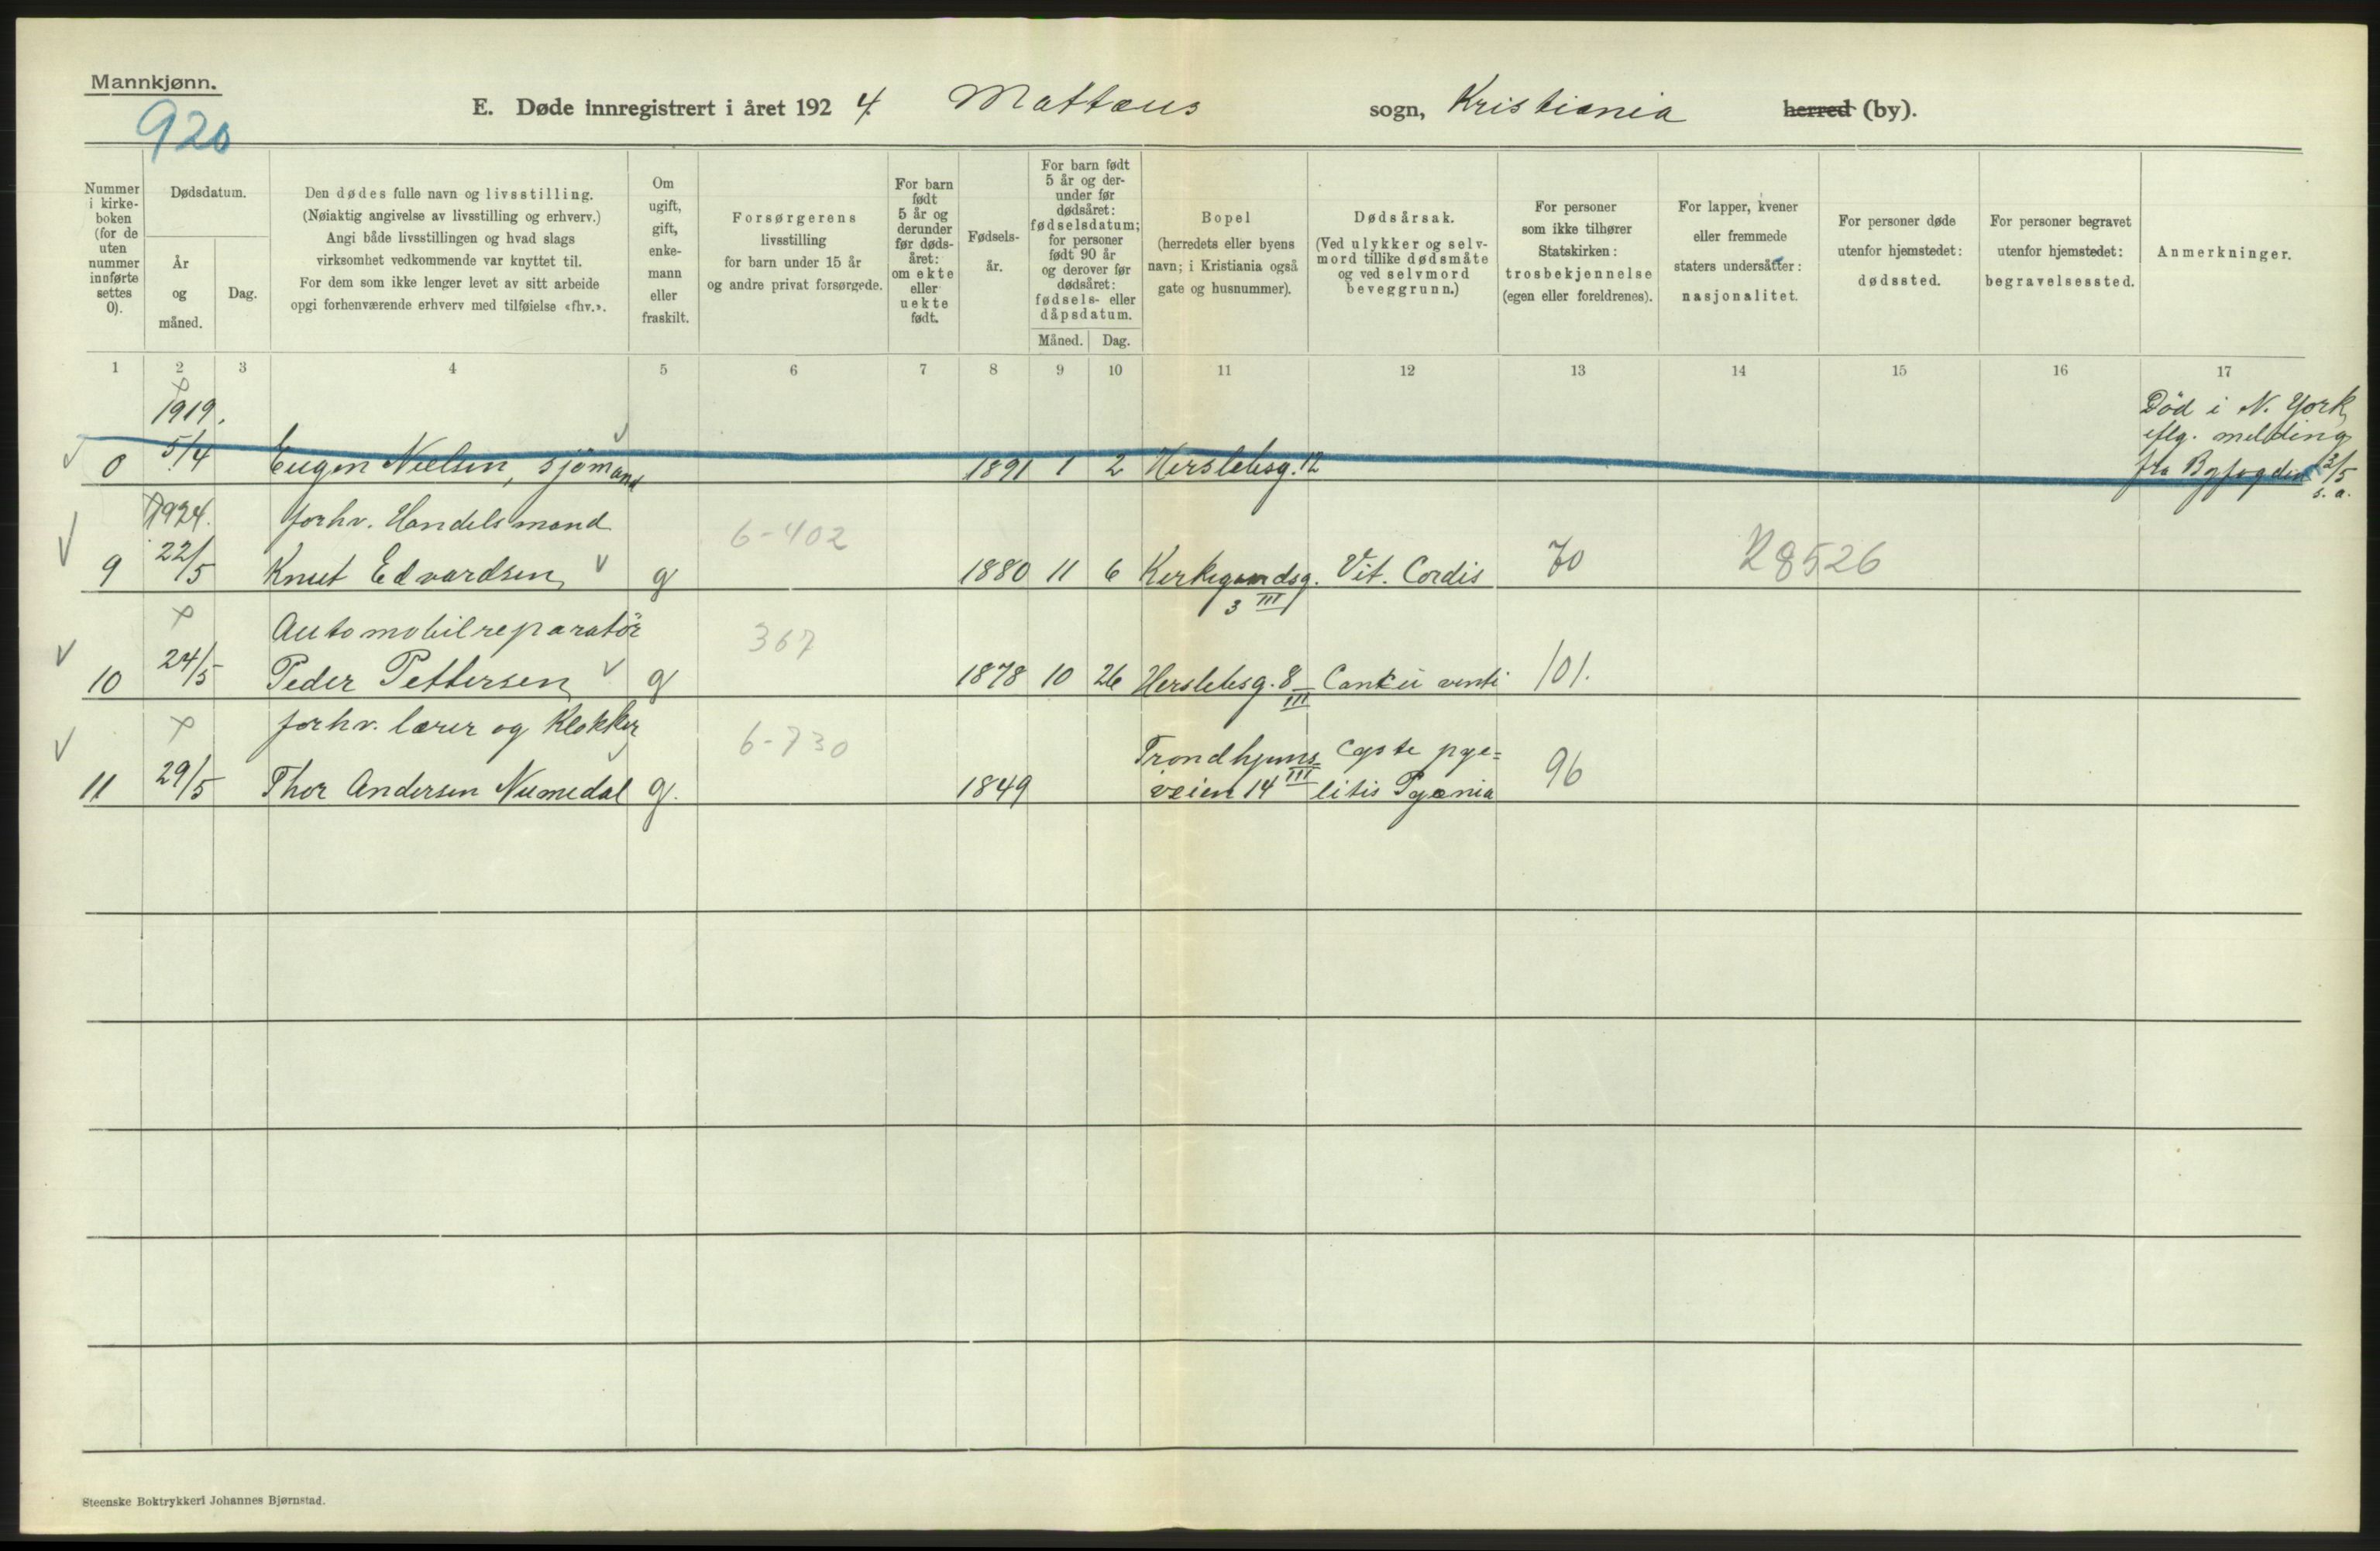 Mannkjønn.
920
E. Døde innregistrert i året 1924. Mattæus sogn, Kristiania herred (by).
Nummer i kirke- boken (for de uten nummer innførte settes 0).
Dødsdatum.
År og måned.
Dag.
Den dødes fulle navn og livsstilling.
(Nøiaktig angivelse av livsstilling og erhverv.)
Angi både livsstillingen og hvad slags
virksomhet vedkommende var knyttet til.
For dem som ikke lenger levet av sitt arbeide
opgi forhenværende erhverv med tilføielse «fhv.».
Om ugift, gift, enke- mann eller fraskilt.
Forsørgerens
livsstilling
for barn under 15 år
og andre privat forsørgede.
For barn født 5 år og derunder før døds- året: om ekte eller uekte født.
Fødsels- år.
For barn født 5 år og der- under før dødsåret: fødselsdatum; for personer født 90 år og derover før dødsåret: fødsels- eller dåpsdatum.
Måned. Dag.
Bopel
(herredets eller byens
navn; i Kristiania også
gate og husnummer).
Dødsårsak.
(Ved ulykker og selv-
mord tillike dødsmåte
og ved selvmord
beveggrunn.)
For personer
som ikke tilhører
Statskirken:
trosbekjennelse
(egen eller foreldrenes).
For lapper, kvener
eller fremmede
staters undersåtter:
nasjonalitet.
For personer døde
utenfor hjemstedet:
dødssted.
For personer begravet
utenfor hjemstedet:
begravelsessted.
Anmerkninger.
1 2 3 4 5 6 7 8 9 10 11 12 13 14 15 16 17
1919.
0 5/4 Eugen Nielsen, sjömand 1891 1 2 Herslebsg. 12
Död i N. York
eflg. melding
fra Byfogden 13/5
s. a.
1924. forhv. Handelsmand 6-402
9 22/5 Knut Edvardsen g 1880 11 6 Kirkegaardsg. Vit. Cordis 70 28526
3 III
Automobilreparatör 367
10 24/5 Peder Pettersen g 1878 10 26 Herslebsg. 8 III Cancer ventr 101.
forhv. lærer og Klokker 6-730
11 29/5 Thor Andersen Numedal g. 1849 Trondhjems- veien 14 III Cysto pye- litis Pyæmia 96
Steenske Boktrykkeri Johannes Bjørnstad.